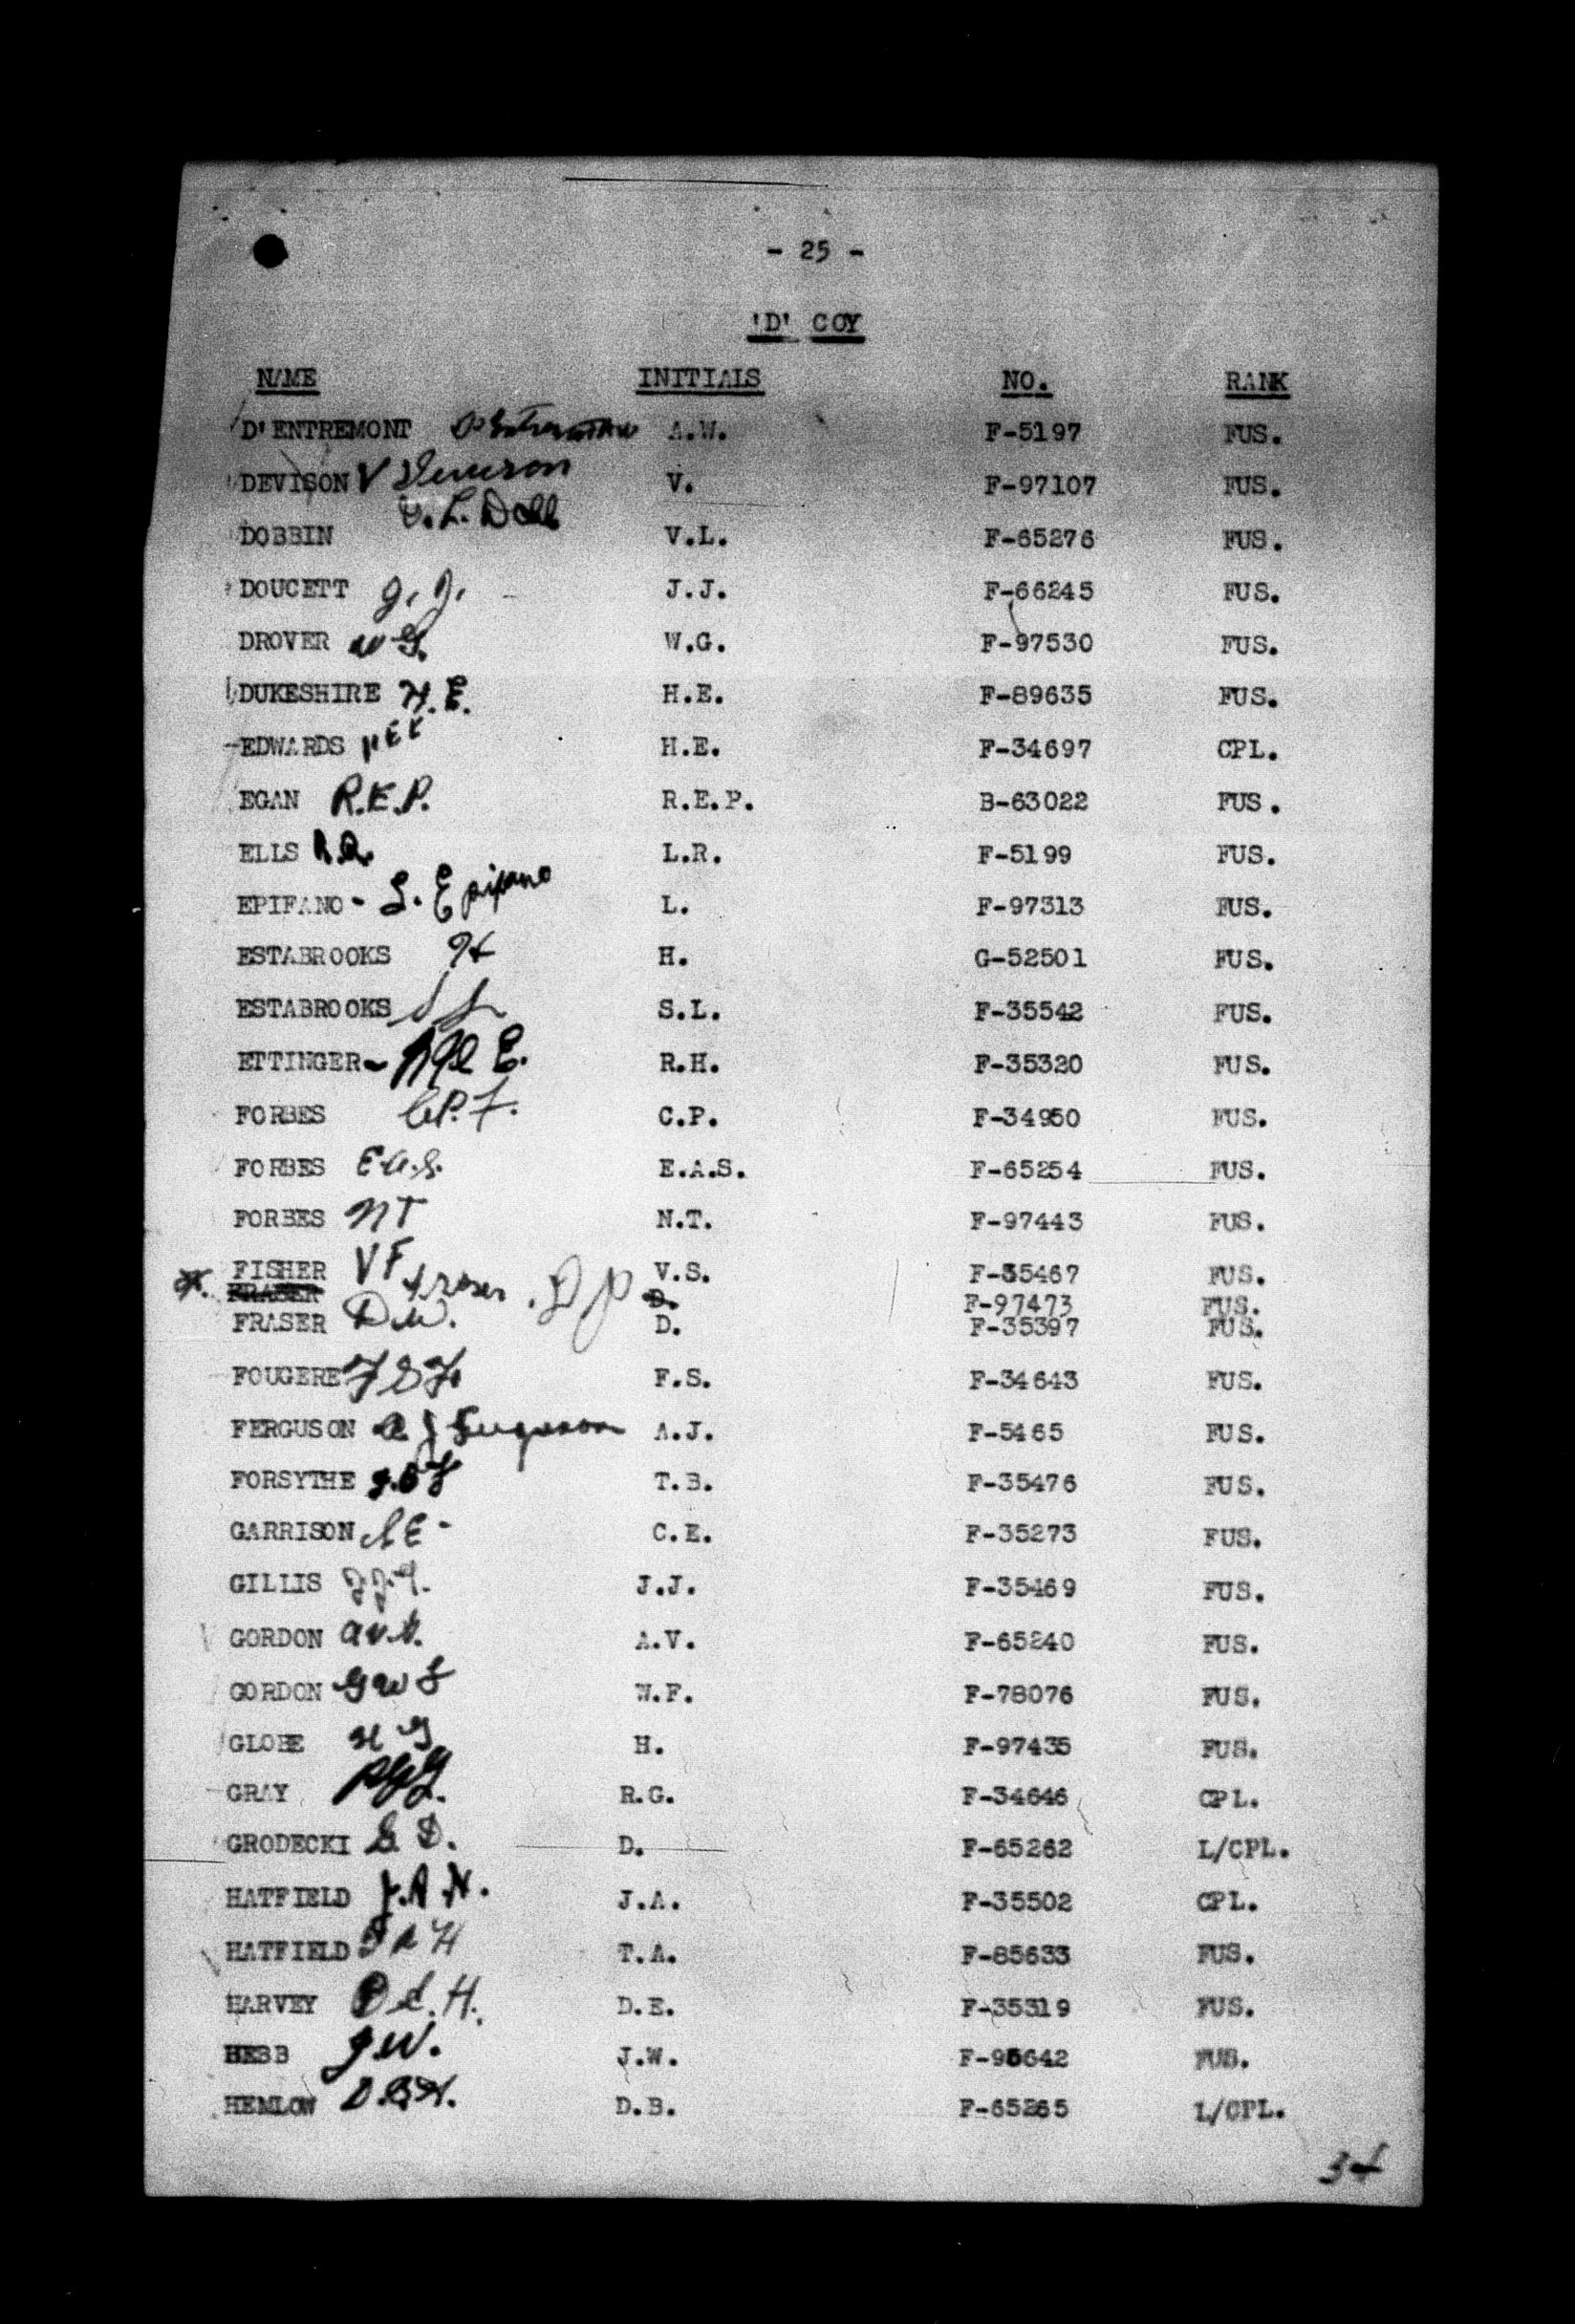 - 25 -
'D' COY
NAME INITIALS NO. RANK
D'ENTREMONT A.W. F-5197 FUS.
DEVISON V Devison V. F-97107 FUS.
DOBBIN V.L. V.L. F-65276 FUS.
DOUCETT J.J. J.J. F-66245 FUS.
DROVER W G. W.G. F-97530 FUS.
DUKESHIRE H.E. H.E. F-89635 FUS.
EDWARDS HEE H.E. F-34697 CPL.
EGAN R.E.P. R.E.P. B-63022 FUS.
ELLS L.R. L.R. F-5199 FUS.
EPIFANO - L. Epifano L. F-97313 FUS.
ESTABROOKS H H. G-52501 FUS.
ESTABROOKS S L S.L. F-35542 FUS.
ETTINGER - R.H. F-35320 FUS.
FORBES C.P. F. C.P. F-34950 FUS.
FORBES E.A.S. E.A.S. F-65254 FUS.
FORBES N T N.T. F-97443 FUS.
FISHER V F V.S. F-35467 FUS.
FRASER fraser. D P D. F-97473 FUS.
FRASER D.W. D. F-35397 FUS.
FOUGERE F S F. F.S. F-34643 FUS.
FERGUSON A J Ferguson A.J. F-5465 FUS.
FORSYTHE T.B. F-35476 FUS.
GARRISON C E - C.E. F-35273 FUS.
GILLIS J.J.G. J.J. F-35469 FUS.
GORDON A.V. F-65240 FUS.
GORDON G W F W.F. F-78076 FUS.
GLOBE H G H. F-97435 FUS.
GRAY R G G. R.G. F-34646 CPL.
GRODECKI G D. D. F-65262 L/CPL.
HATFIELD J.A.H. J.A. F-35502 CPL.
HATFIELD T A H T.A. F-85633 FUS.
HARVEY D E. H. D.E. F-35319 FUS.
HEBB J.W. J.W. F-95642 FUS.
HEMLOW D.B.H. D.B. F-65265 L/CPL.
34